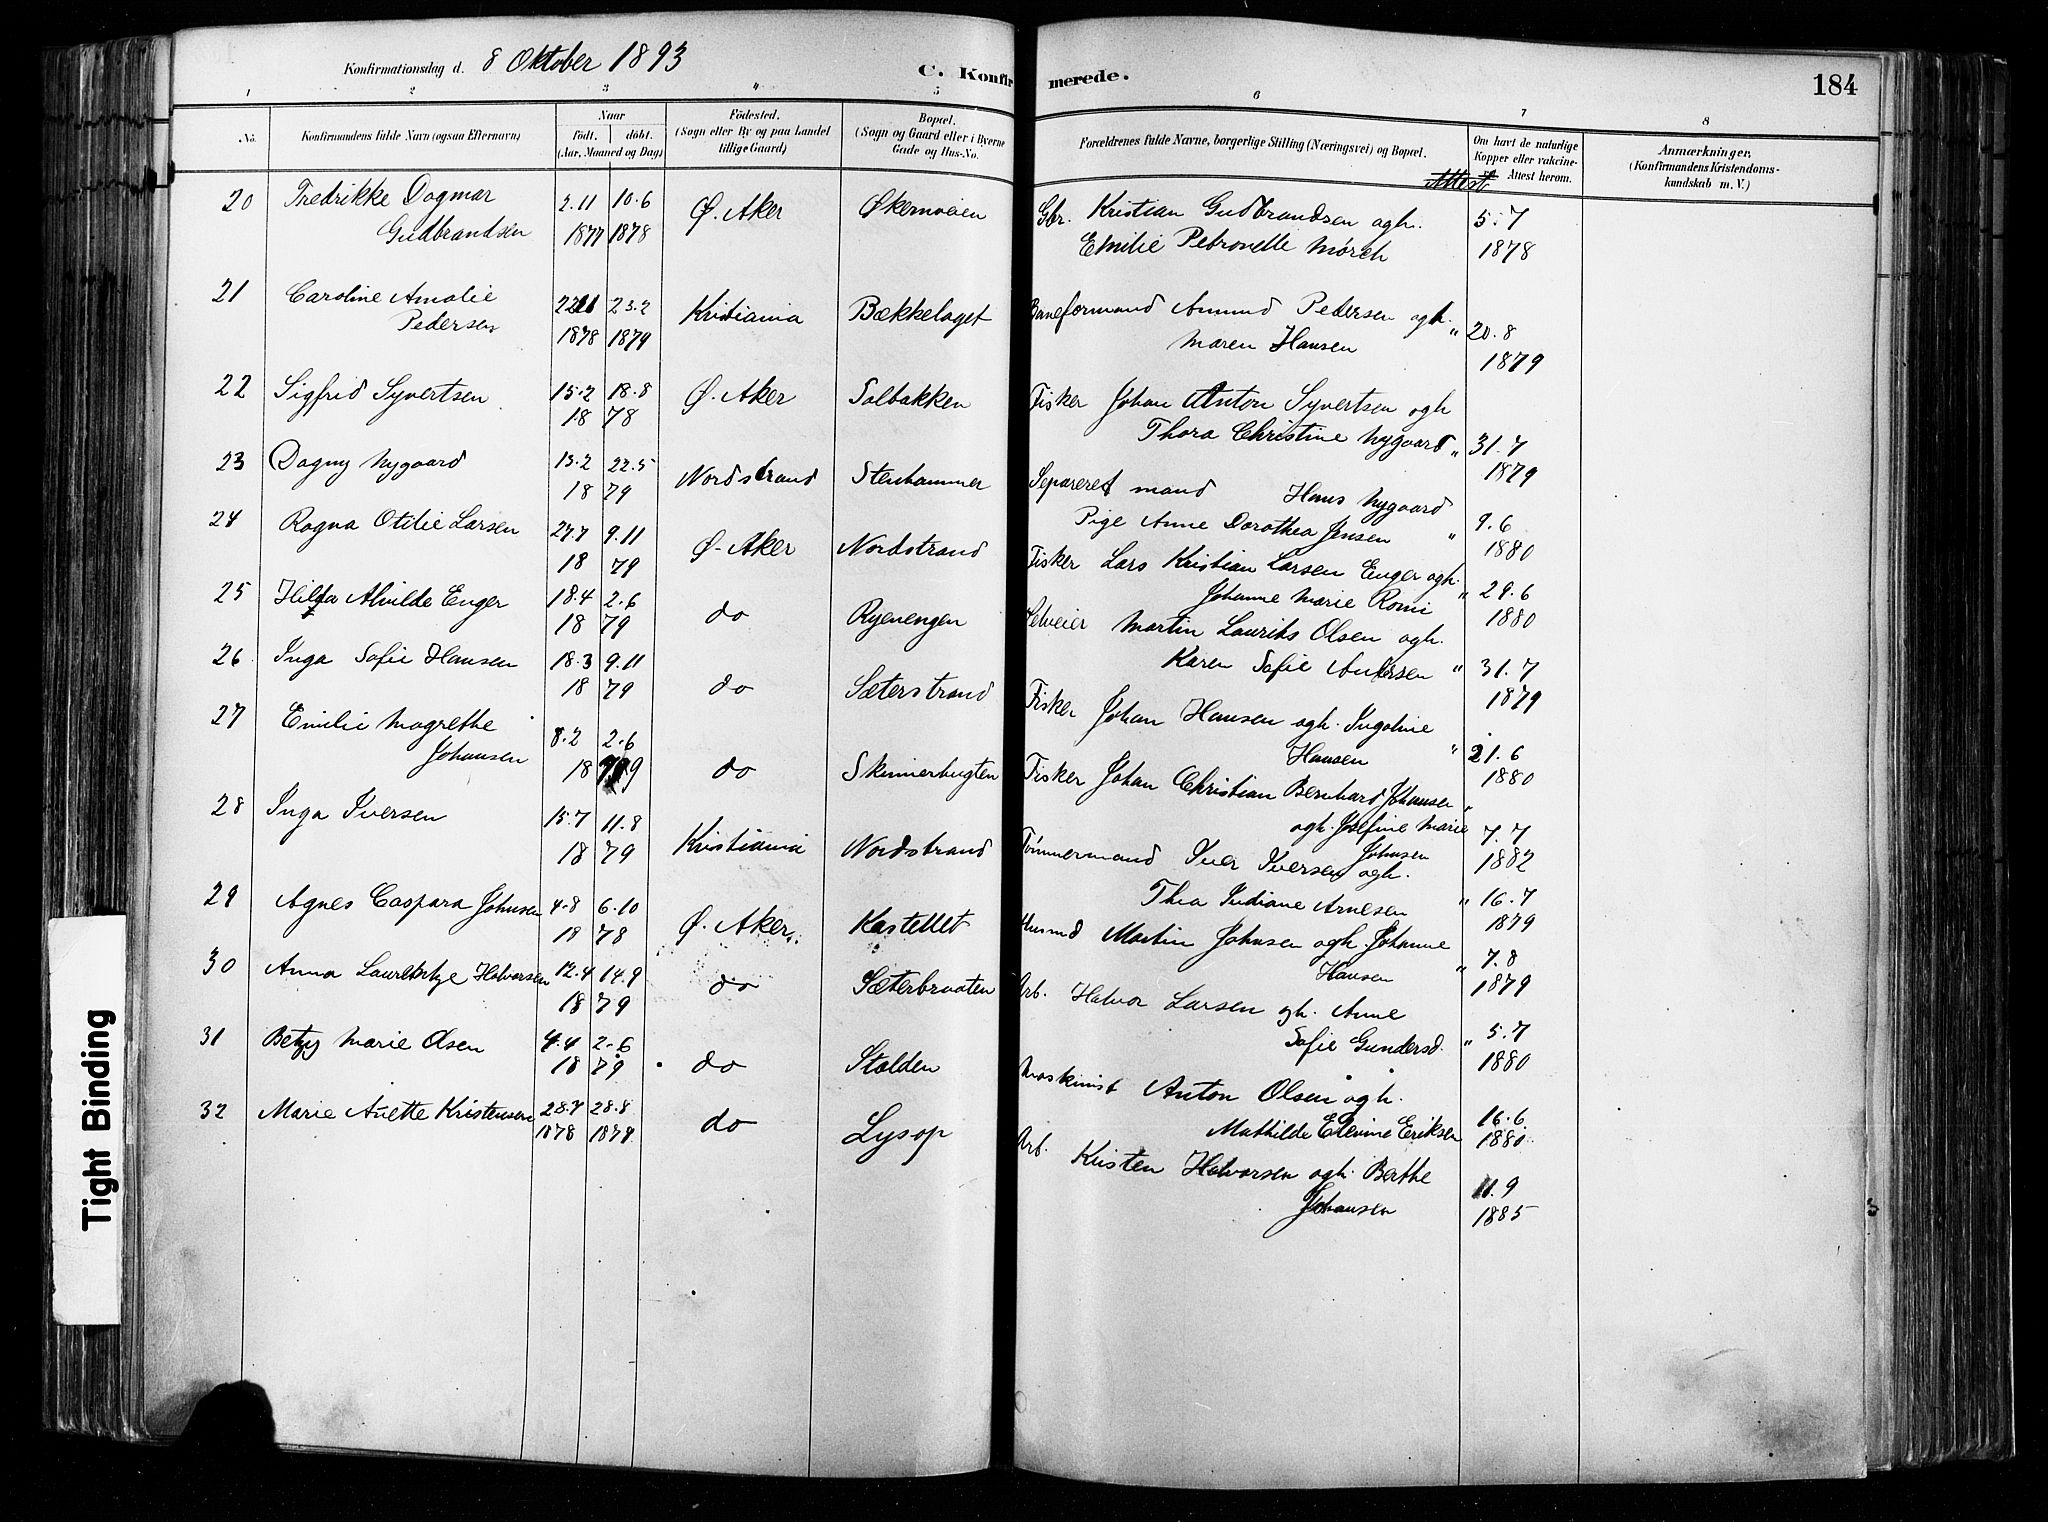 Konfirmationsdag d. 8 Oktober 1893
C. Konfirmerede.
184
1 2 3 4 5 6 7 8
No. Konfirmandens fulde Navn (ogsaa Efternavn) Naar født. døbt. (Aar, Maaned og Dag) Fødested. (Sogn eller By og paa Landet tillige Gaard) Bopæl. (Sogn og Gaard eller i Byerne Gade og Hus-No. Forældrenes fulde Navne, borgerlige Stilling (Næringsvei) og Bopæl. Om havt de naturlige Kopper eller vakcine-Attest herom. Anmærkninger. (Konfirmandens Kristendomskundskab m. V.)
Attest
20 Fredrikke Dagmar 2.11 10.6 Ø. Aker Økernveien Gbr. Kristian Gudbrandsen ogh. 5.7
Gudbrandsen 1877 1878 Emilie Petronelle Mörch 1878
21 Caroline Amalie 23.2 Kristiania Bækkelaget Baneformand Amund Pedersen ogh. " 20.8
Pedersen 1878 1879 Maren Hansen 1879
22 Sigfrid Syvertsen 15.2 18.8 Ø. Aker Solbakken Fisker Johan Anton Syvertsen ogh
18 78 Thora Christine Nygaard " 31.7 1879
23 Dagny Nygaard 13.2 22.5 Nordstrand Stenhammer Separeret mand Hans Nygaard
18 79 Pige Anne Dorothea Jensen " 9.6 1880
24 Ragna Otilie Larsen 27.7 9.11 Ø. Aker Nordstrand Fisker Lars Kristian Larsen Enger ogh.
18 79 Johanne Marie Romi " 29.6 1880
25 Hilda Alvilde Enger 18.4 2.6 do Ryenengen Selveier Martin Laurits Olsen ogh.
18 79 Karen Sofie Andersen " 31.7 1879
26 Inga Sofie Hansen 18.3 9.11 do Sæterstrand Fisker Johan Hansen ogh. Ingoline
18 79 Hansen " 21.6 1880
27 Emilie Magrethe 8.2 2.6 do Skinnerbugten Fisker Johan Christian Bernhard Johansen "
Johansen 18 79 ogh. Josefine Marie Johnsen 7.7 1882
28 Inga Iversen 15.7 11.8 Kristiania Nordstrand Tømmermand Iver Iversen ogh.
18 79 Thea Indiane Arnesen " 16.7 1879
29 Agnes Caspara Johnsen 4.8 6.10 Ø. Aker Kastellet Husmd Martin Johnsen ogh. Johanne 7.8
18 78 Hansen " 1879
30 Anna Halvorsen 12.4 14.9 do Sæterbraaten Arb. Halvor Larsen ogh. Anne
18 79 Sofie Gundersd. " 5.7 1880
31 Betzy Marie Olsen 4.4 2.6 do Stolden Maskinist Anton Olsen ogh.
18 79 Mathilde Eriksen 16.6 1880
32 Marie Anette Kristensen 28.7 28.8 do Lysop Arb. Kristen Halvorsen ogh. Berthe 11.9
1878 1879 Johansen 1885
Tight Binding